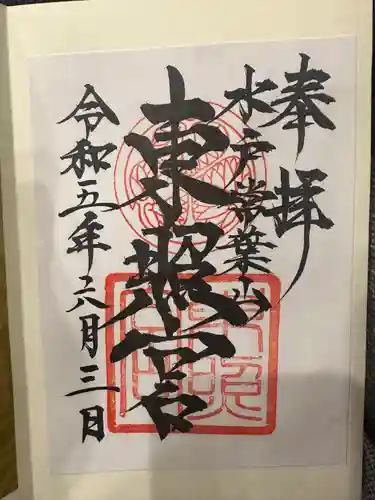 奉拝
水戸常葉山
東照宮
令和五年六月三日